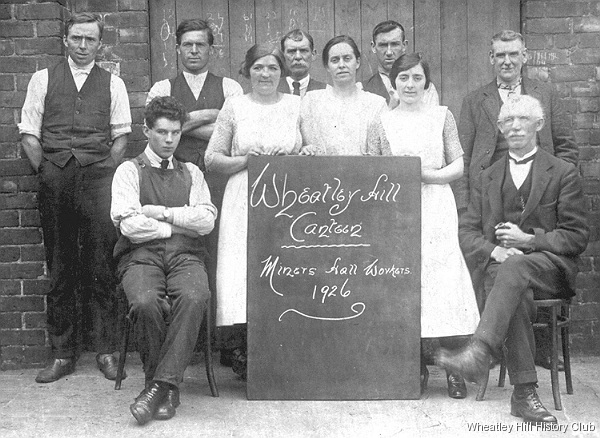 Wheatley Hill
Canteen
Miners Hall Workers
1926
Wheatley Hill History Club